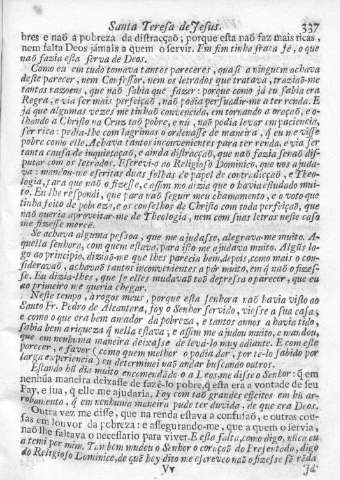 Santa Teresa de Jesus. 337
bres e naõ a pobreza da distracçaõ; porque esta naõ faz mais ricas,
nem falta Deos jámais a quem o servir. Em fim tinha fraca fé, o que
naõ fazia esta serva de Deos.
Como eu em tudo tomava tantos pareceres, quasi a ninguem achava
deste parecer, nem Confessor, nem os letrados que tratava, traziaõ-me
tantas razoens, que naõ sabia que fazer: porque como já eu sabia era
Regra, e via ser mais perfeiçaõ, naõ podia persuadir-me a ter renda. E
já que algumas vezes me tinhaõ convencido, em tornando á oraçaõ, e o-
lhando a Christo na Cruz taõ pobre, e nú, naõ podia levar em paciencia,
ser rica: pedia-lhe com lagrimas o ordenasse de maneira, q̃ eu me visse
pobre como elle. Achava tantos inconvenientes para ter renda, e via ser
tanta causa de inquietaçaõ, e ainda distracçaõ, que naõ fazia senaõ dis-
putar com os letrados. Escrevi-o ao Religioso Dominico, que nos ajuda-
va: mandou-me escritas duas folhas de papel de contradicçaõ, e Theo-
logia, para que naõ o fizesse, e assim mo dizia que o havia estudado mui-
to. Eu lhe respondi, que para naõ seguir meu chamamento, e o voto que
tinha feito de pobreza, e os conselhos de Christo com toda perfeiçaõ, que
naõ queria aproveitar-me de Theologia, nem com suas letras neste caso
me fizesse mercê.
Se achava alguma pessoa, que me ajudasse, alegrava-me muito. A-
quella senhora, com quem estava, para isso me ajudava muito. Algũs lo-
go ao principio, diziaõ-me que lhes parecia bem, depois, como mais o con-
sideravaõ, achavaõ tantos inconvenientes a pôr muito, em q̃ naõ o fizes-
se. Eu dizia-lhes, que se elles mudavaõ taõ depressa o parecer, que eu
ao primeiro me queria chegar.
Neste tempo, a rogos meus, porque esta senhora naõ havia visto ao
Santo Fr. Pedro de Alcantara, foy o Senhor servido, viesse a sua casa;
e como o que era bem amador da pobreza, e tantos annos a havia tido,
sabia bem a riqueza q̃ nella estava; e assim me ajudou muito, e mandou,
que em nenhuma maneira deixasse de levá-lo muy adiante. E com este
parecer, e favor (como quem melhor o podia dar, por te-lo sabido por
larga experiencia) eu determinei naõ andar buscando outros.
Estando hũ dia muito encomendando-o a Deos, me disse o Senhor: q̃ em
nenhũa maneira deixasse de fazê-lo pobre, q̃ esta era a vontade de seu
Pay, e sua, q̃ elle me ajudaria. Foy com taõ grandes effeitos em hũ ar-
robamento, q̃ em nenhuma maneira pude ter duvida, de que era Deos.
Outra vez me disse, que na renda estava a confusaõ, e outras cou-
sas em louvor da pobreza: e assegurando-me, que a quem o servia,
naõ lhe faltava o necessario para viver. E esta falta, como digo, nunca eu
a temi por mim. Tambem mudou o Senhor o coraçaõ do Presentado, digo
do Religioso Dominico, de quẽ hey dito me escreveo naõ o fizesse sẽ rẽda.
Vv Já